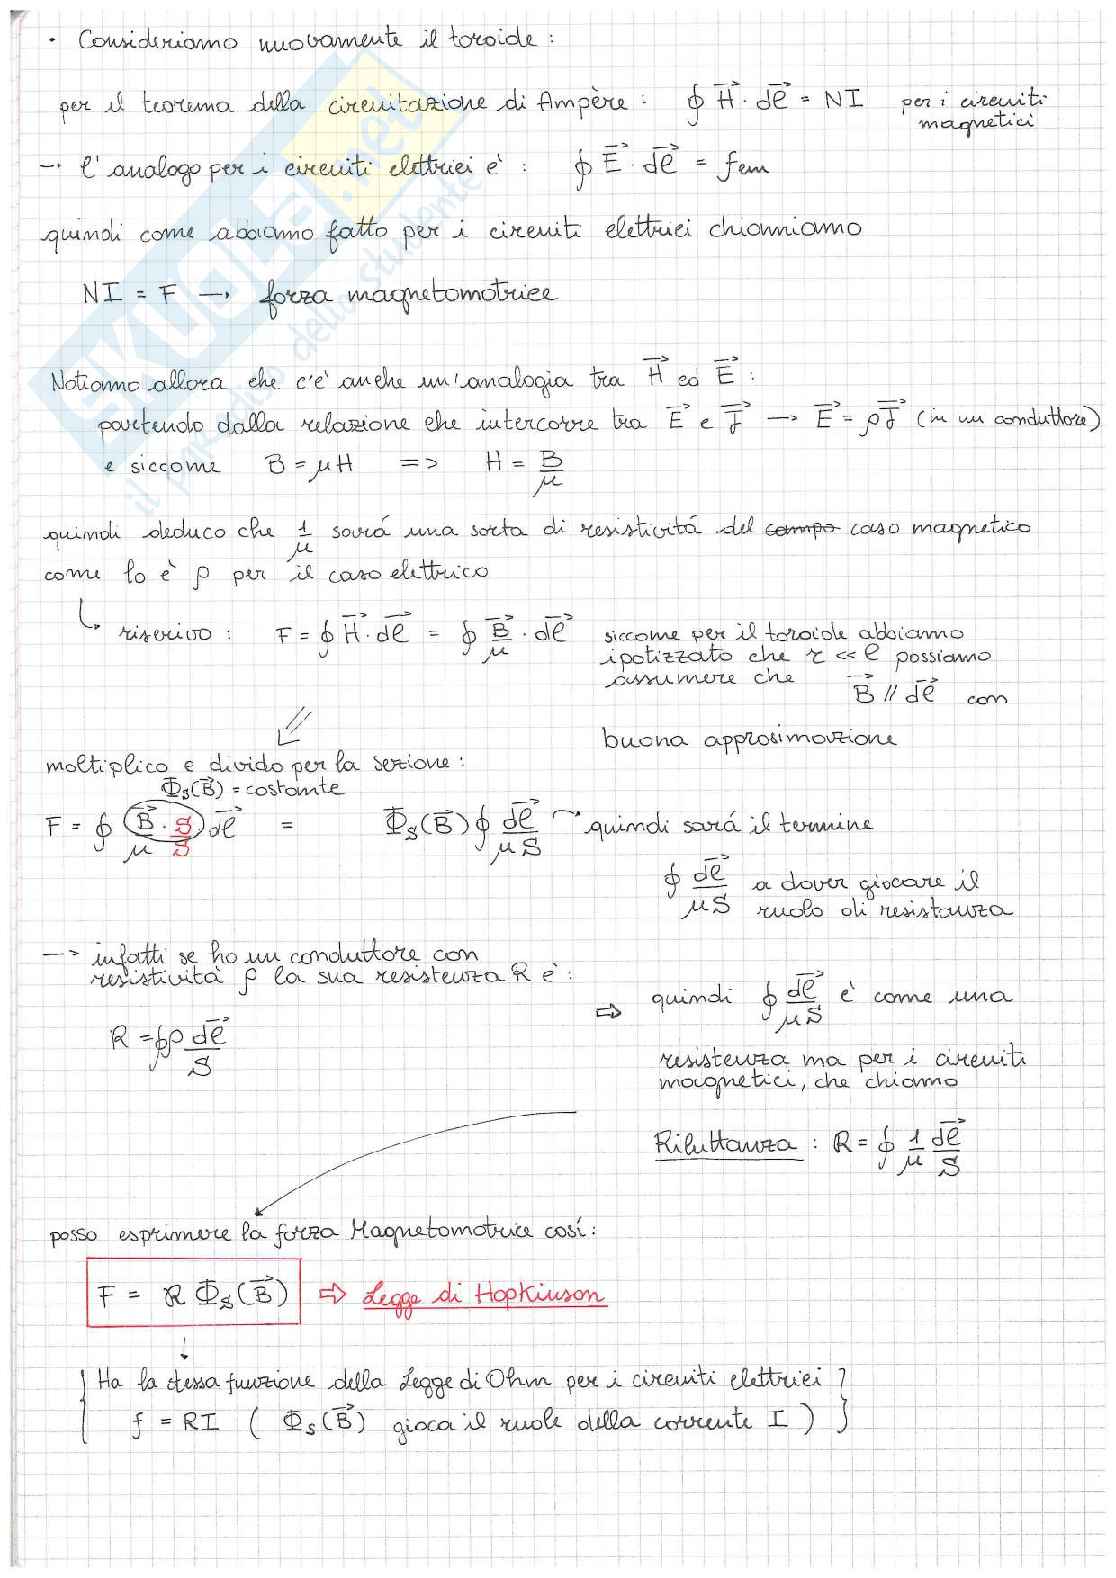 · Consideriamo nuovamente il toroide :
per il teorema della circuitazione di Ampère : ∮ H⃗ · dl⃗ = NI per i circuiti
magnetici
→ l'analogo per i circuiti elettrici è : ∮ E⃗ · dl⃗ = fem
quindi come abbiamo fatto per i circuiti elettrici chiamiamo
NI = F → forza magnetomotrice
Notiamo allora che c'è anche un'analogia tra H⃗ ed E⃗ :
partendo dalla relazione che intercorre tra E⃗ e J⃗ → E⃗ = ρJ⃗ (in un conduttore)
e siccome B = μH => H = B/μ
quindi deduco che 1/μ sará una sorta di resistivitá del campo caso magnetico
come lo è ρ per il caso elettrico
riscrivo : F = ∮ H⃗ · dl⃗ = ∮ B⃗/μ · dl⃗ siccome per il toroide abbiamo
ipotizzato che r << l possiamo
assumere che B⃗ // dl⃗ con
buona approssimazione
moltiplico e divido per la sezione :
Φs(B⃗) = costante
F = ∮ B⃗/μ · S/S dl⃗ = Φs(B⃗) ∮ dl⃗/μS → quindi sará il termine
∮ dl⃗/μS a dover giocare il
ruolo di resistenza
→ infatti se ho un conduttore con
resistività ρ la sua resistenza R è :
R = ∮ρ dl⃗/S
⇨ quindi ∮ dl⃗/μS è come una
resistenza ma per i circuiti
magnetici, che chiamo
Riluttanza : R = ∮ 1/μ dl⃗/S
posso esprimere la forza Magnetomotrice cosí :
F = R Φs(B⃗) ⇨ Legge di Hopkinson
{ Ha la stessa funzione della Legge di Ohm per i circuiti elettrici
f = RI ( Φs(B⃗) gioca il ruole della corrente I ) }
SKUOLA.net
il paradiso dello studente